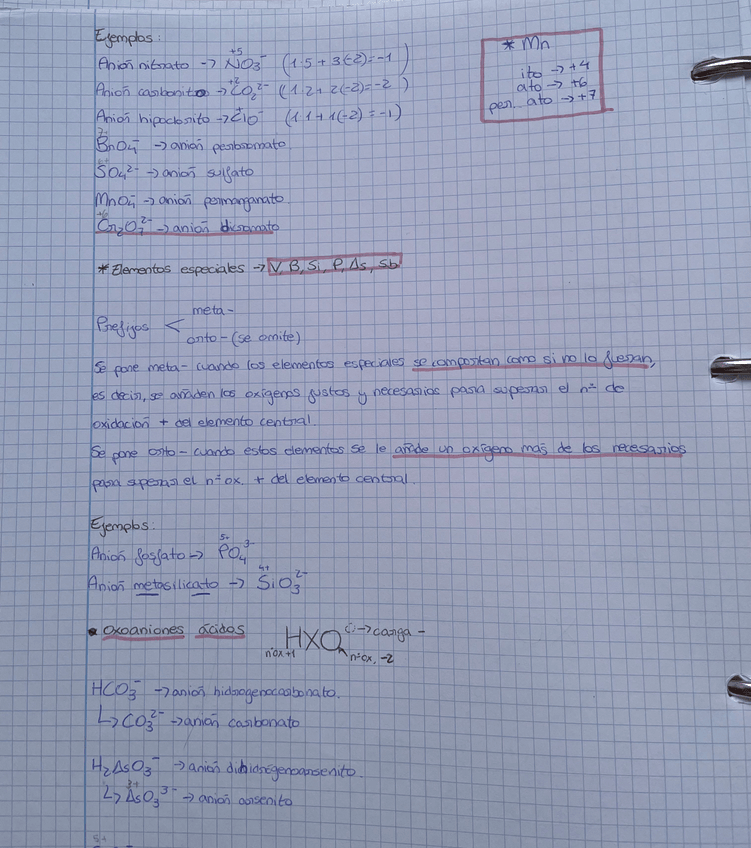 Ejemplos:
Anión nitrato → +5 NO₃⁻ (1·5 + 3(-2) = -1)
Anión carbonito → +2 CO₂²⁻ (1·2 + 2(-2) = -2)
Anión hipoclorito → ClO⁻ (1·1 + 1(-2) = -1)
7+ BrO₄⁻ → anión perbromato
SO₄²⁻ → anión sulfato
MnO₄⁻ → anión permanganato.
+6 Cr₂O₇²⁻ → anión dicromato
* Mn
ito → +4
ato → +6
per... ato → +7
* Elementos especiales → V, B, Si, P, As, Sb
Prefijos < meta-
orto- (se omite)
Se pone meta- cuando los elementos especiales se comportan como si no lo fueran,
es decir, se añaden los oxígenos justos y necesarios para superar el nº de
oxidación + del elemento central.
Se pone orto- cuando estos elementos se le añade un oxígeno más de los necesarios
para superar el nº ox. + del elemento central.
Ejemplos:
Anión fosfato → 5+ PO₄³⁻
Anión metasilicato → 4+ SiO₃²⁻
• Oxoaniones ácidos
HXOₙ⁽⁻⁾ → carga -
nºox +1
nºox. -2
HCO₃⁻ → anión hidrogenocarbonato.
↳ CO₃²⁻ → anión carbonato
H₂AsO₃⁻ → anión dihidrogenoarsenito.
↳ 3+ AsO₃³⁻ → anión arsenito
5+